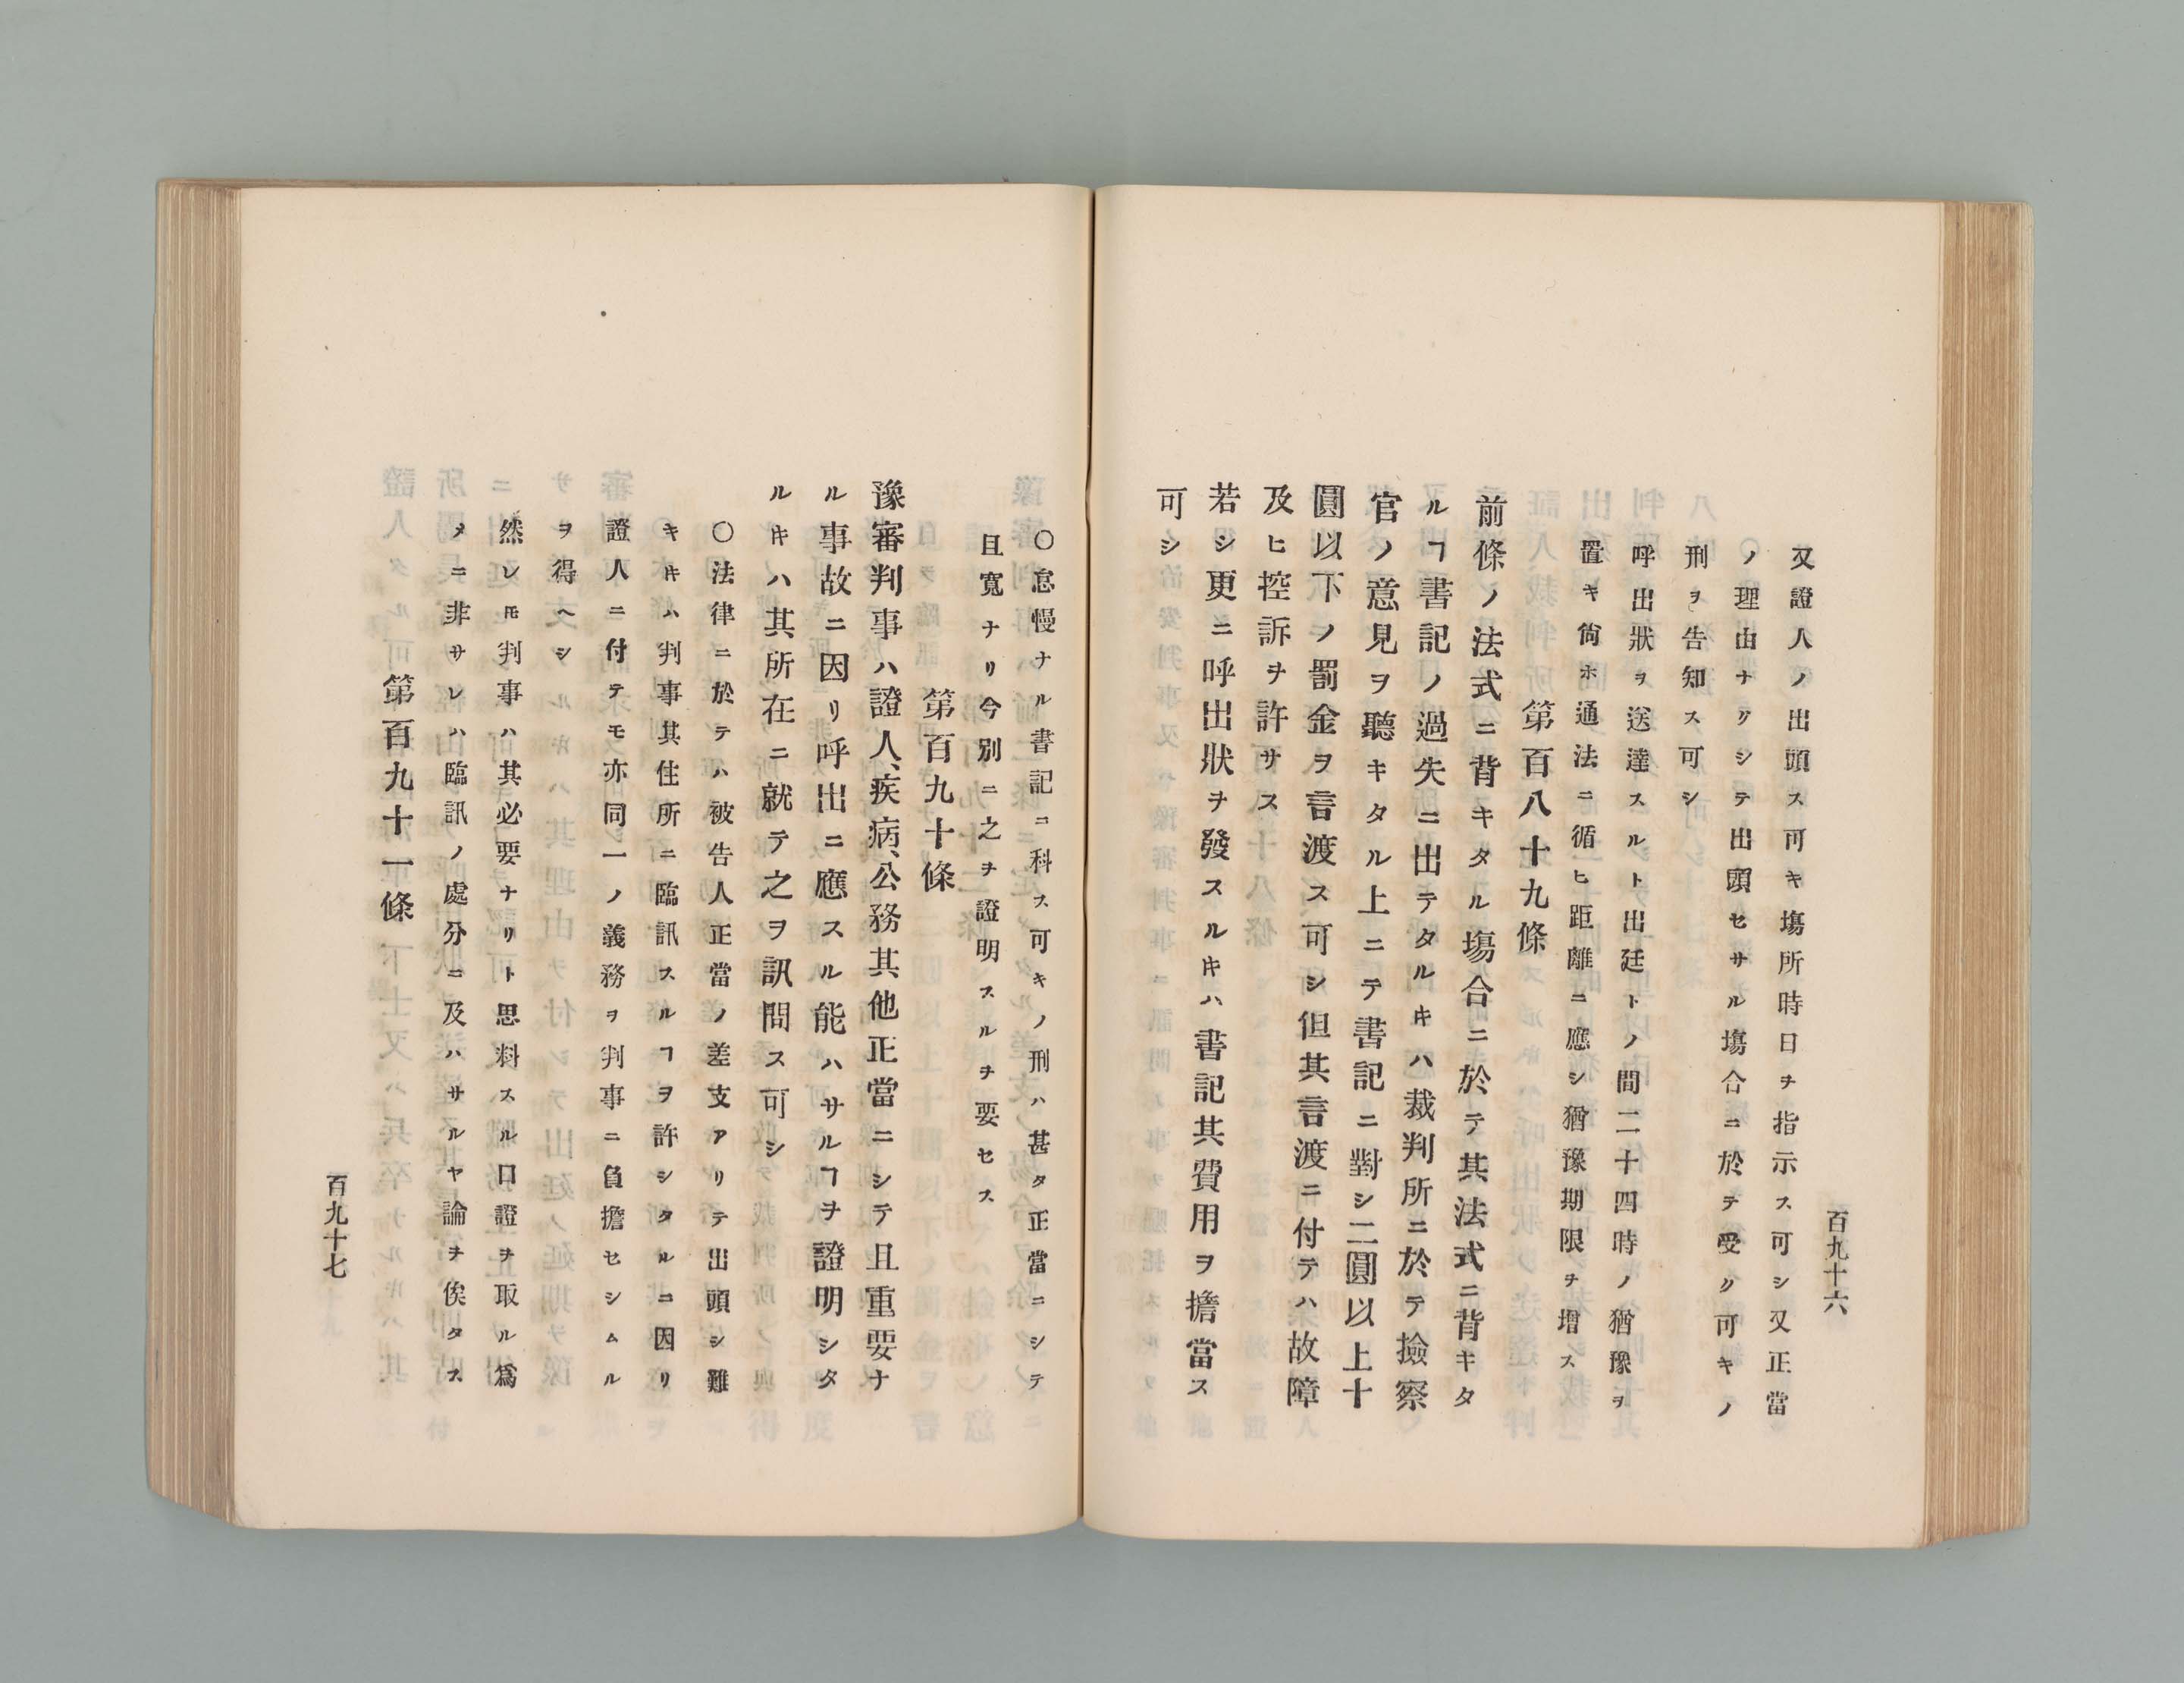 百九十六
又證人ノ出頭ス可キ塲所時日ヲ指示ス可シ又正當
ノ理由ナクシテ出頭セサル塲合ニ於テ受ク可キノ
刑ヲ告知ス可シ
呼出狀ヲ送達スルト出廷トノ間二十四時ノ猶豫ヲ
置キ尙ホ通法ニ循ヒ距離ニ應シ猶豫期限ヲ增ス
第百八十九條
前條ノ法式ニ背キタル塲合ニ於テ其法式ニ背キタ
ルヿ書記ノ過失ニ出テタルキハ裁判所ニ於テ撿察
官ノ意見ヲ聽キタル上ニテ書記ニ對シ二圓以上十
圓以下ノ罰金ヲ言渡ス可シ但其言渡ニ付テハ故障
及ヒ控訴ヲ許サス
若シ更ニ呼出狀ヲ發スルキハ書記其費用ヲ擔當ス
可シ
〇怠慢ナル書記ニ科ス可キノ刑ハ甚タ正當ニシテ
且寬ナリ今別ニ之ヲ證明スルヲ要セス
第百九十條
豫審判事ハ證人、疾病、公務其他正當ニシテ且重要ナ
ル事故ニ因リ呼出ニ應スル能ハサルヿヲ證明シタ
ルキハ其所在ニ就テ之ヲ訊問ス可シ
〇法律ニ於テハ被告人正當ノ差支アリテ出頭シ難
キキハ判事其住所ニ臨訊スルヿヲ許シタルニ因リ
證人ニ付テモ亦同一ノ義務ヲ判事ニ負擔セシムル
ヲ得ヘシ
然レ𪜈判事ハ其必要ナリト思料スル口證ヲ取ル爲
メニ非サレハ臨訊ノ處分ニ及ハサルヤ論ヲ俟タス
第百九十一條
百九十七